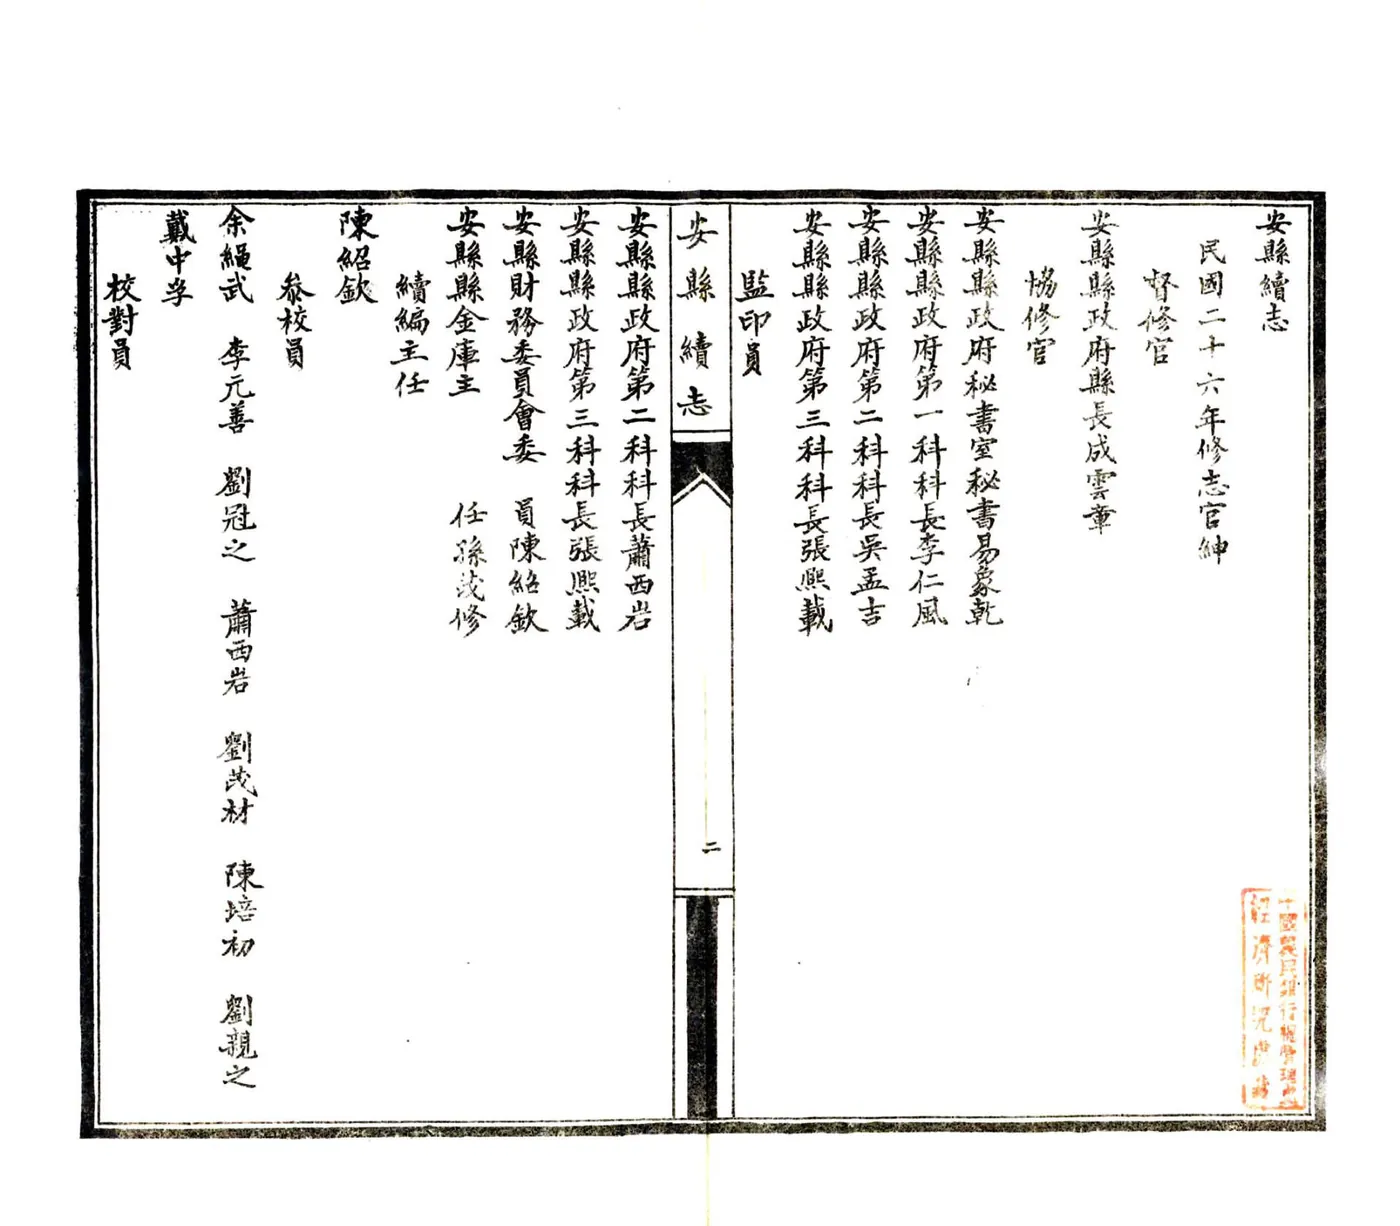 安縣續志
民國二十六年修志官紳
督修官
安縣縣政府縣長成雲章
協修官
安縣縣政府秘書室秘書易象乾
安縣縣政府第一科科長李仁風
安縣縣政府第二科科長吳孟吉
安縣縣政府第三科科長張熙載
監印員
安縣續志
二
安縣縣政府第二科科長蕭西岩
安縣縣政府第三科科長張熙載
安縣財務委員會委員陳紹欽
安縣縣金庫主任孫茂修
續編主任
陳紹欽
參校員
余繩武 李元善 劉冠之 蕭西岩 劉茂材 陳培初 劉親之
戴中孚
校對員
經濟研究